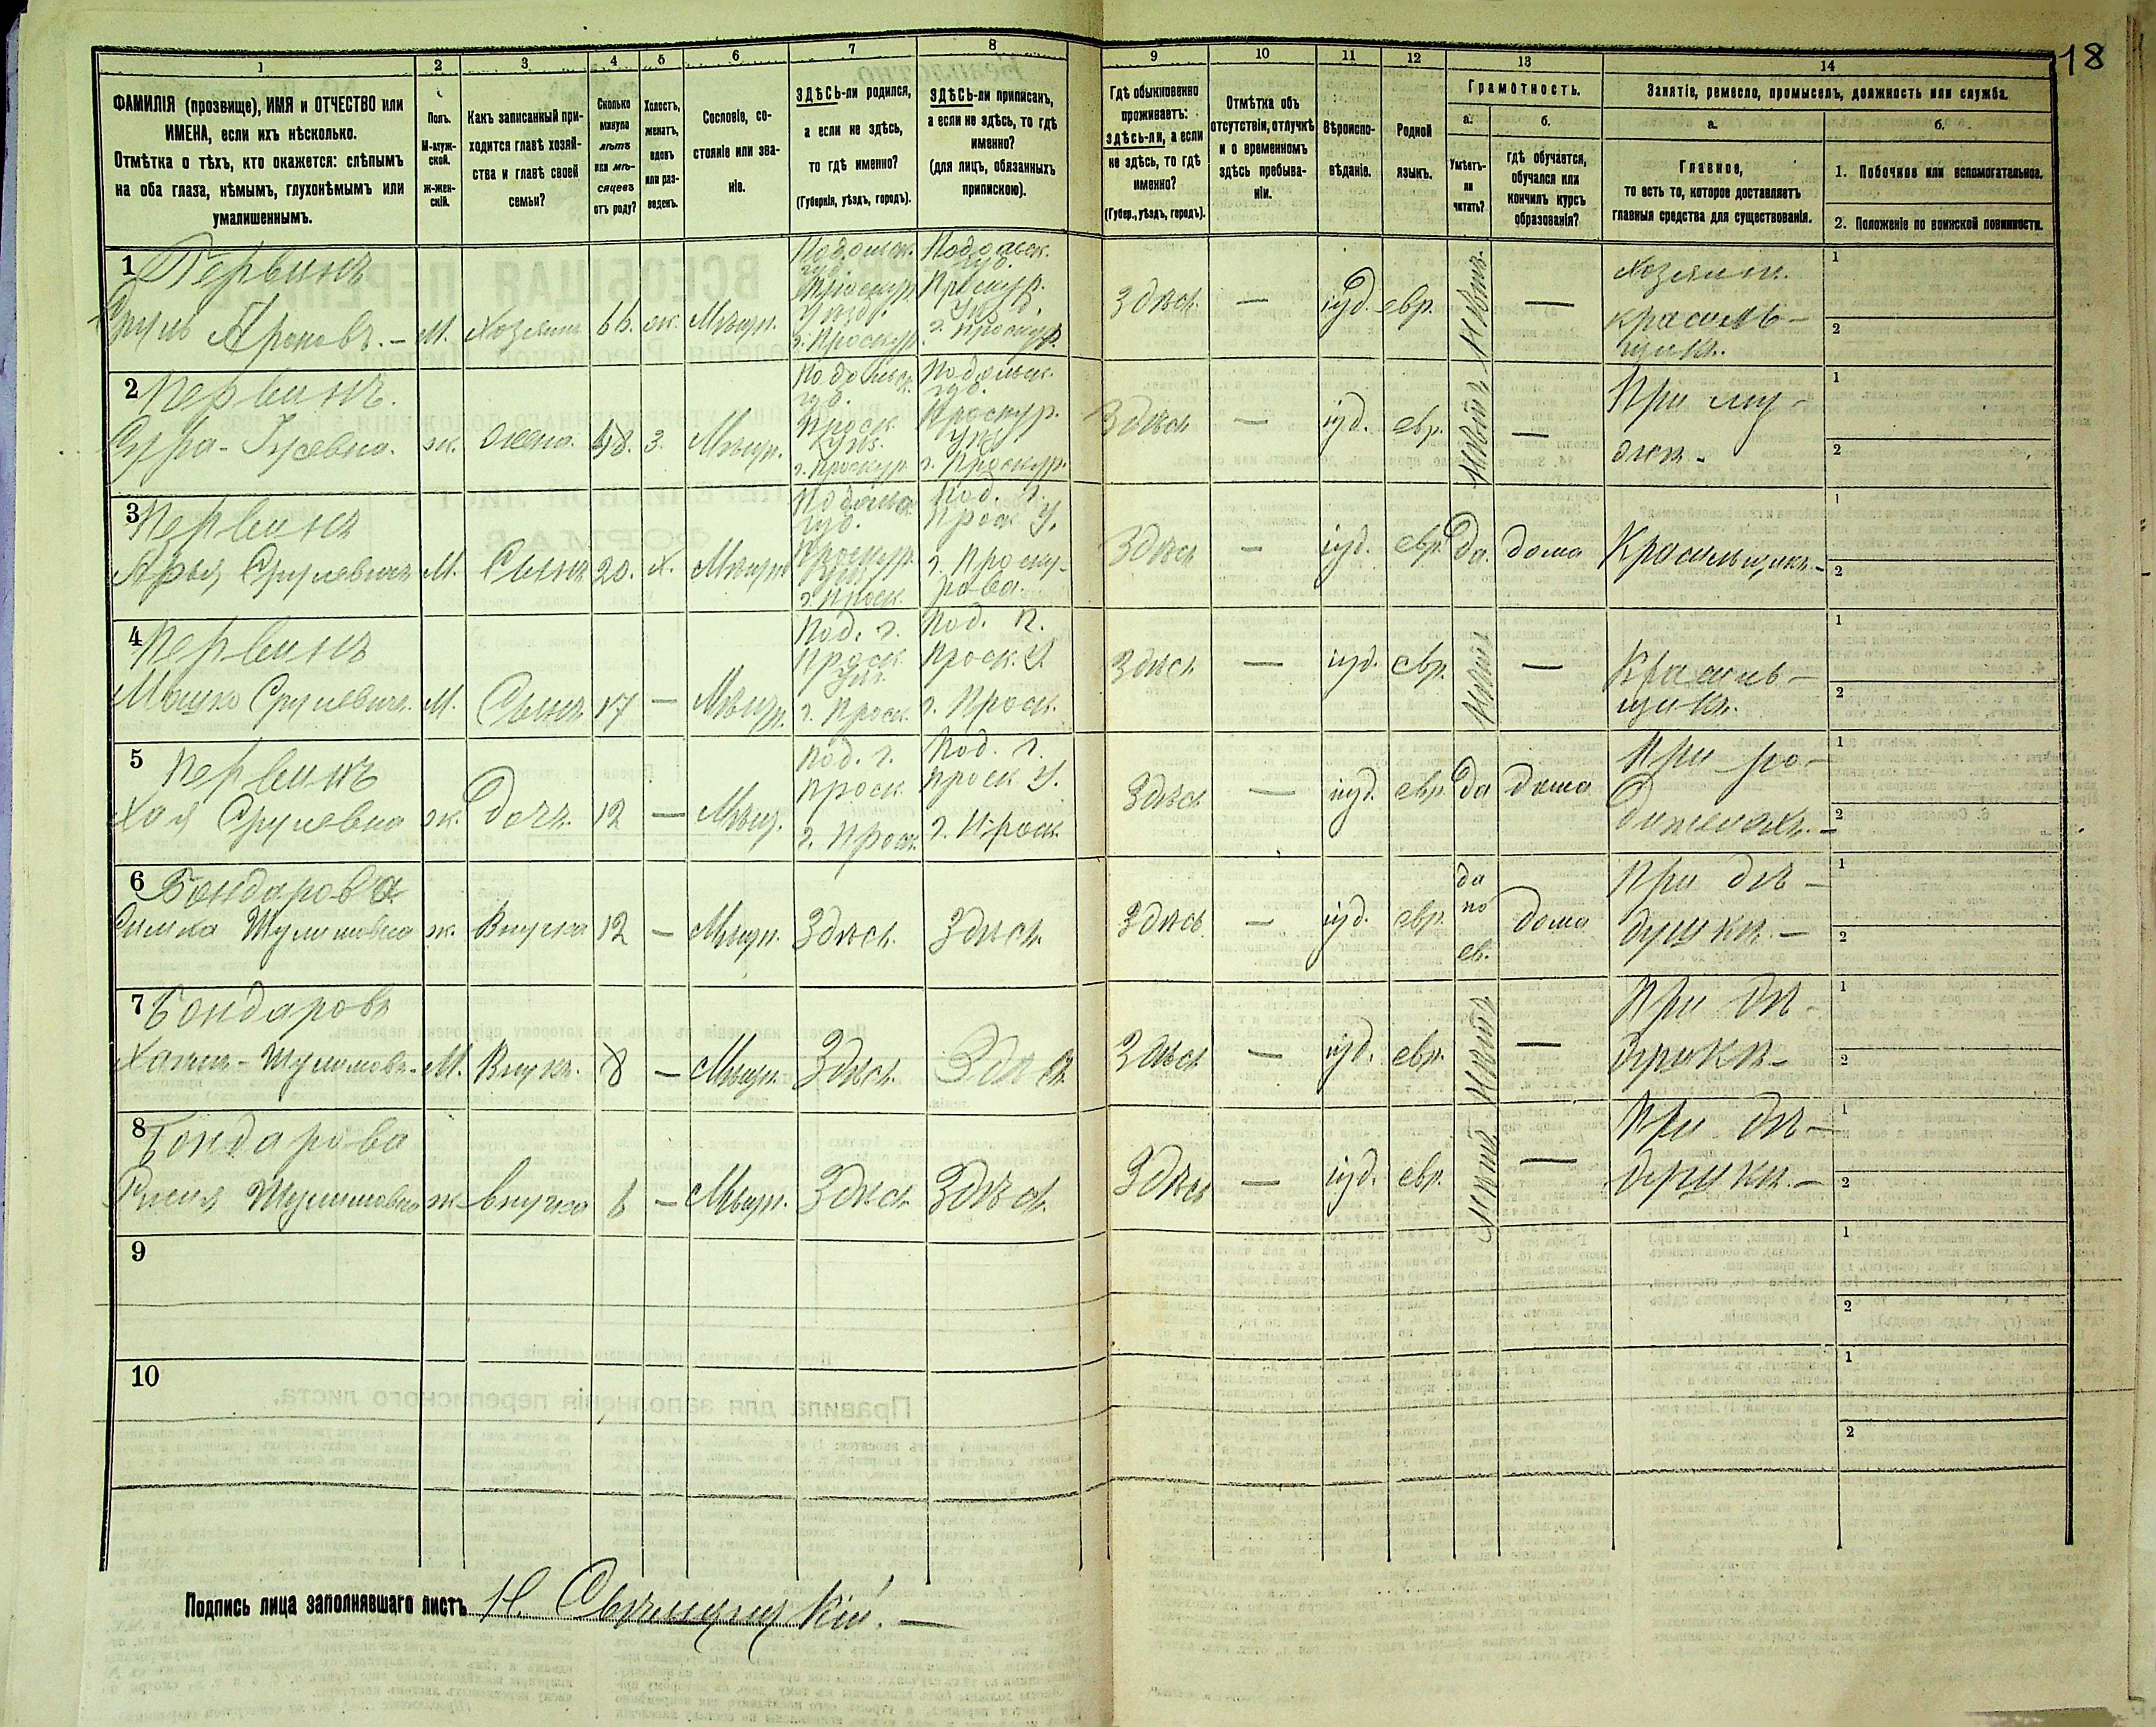 18
1 2 3 4 5 6 7 8 9 10 11 12 13 14
ФАМИЛІЯ (прозвище), ИМЯ и ОТЧЕСТВО или ИМЕНА, если ихъ нѣсколько.
Отмѣтка о тѣхъ, кто окажется: слѣпымъ на оба глаза, нѣмымъ, глухонѣмымъ или умалишеннымъ.
Полъ. М-муж-ской. Ж-жен-скій.
Какъ записанный при-ходится главѣ хозяй-ства и главѣ своей семьи?
Сколько минуло лѣтъ или мѣ-сяцевъ отъ роду?
Холостъ, женатъ, вдовъ или раз-веденъ.
Сословіе, со-стояніе или зва-ніе.
ЗДѢСЬ-ли родился, а если не здѣсь, то гдѣ именно? (Губернія, уѣздъ, городъ).
ЗДѢСЬ-ли приписанъ, а если не здѣсь, то гдѣ именно? (для лицъ, обязанныхъ припискою).
Гдѣ обыкновенно проживаетъ: ЗДѢСЬ-ли, а если не здѣсь, то гдѣ именно? (Губер., уѣздъ, городъ).
Отмѣтка объ отсутствіи, отлучкѣ и о временномъ здѣсь пребыва-ніи.
Вѣроиспо-вѣданіе.
Родной языкъ.
Грамотность.
а. Умѣетъ-ли читать?
б. гдѣ обучается, обучался или кончилъ курсъ образованія?
Занятіе, ремесло, промыселъ, должность или служба.
а. Главное, то есть то, которое доставляетъ главныя средства для существованія.
б. 1. Побочное или вспомогательное.
2. Положеніе по воинской повинности.
1 Первинъ
Сруль Ароновъ. – М. Хозяинъ 66. ж. Мѣщ. Подольск. губ. Проскур. г. Проскур. Подольск. губ. Проскур. г. Проскур. Здѣсь — іуд. евр. — Хозяинъ красиль-щикъ.
2 Первинъ.
ж. жена 48. з. Мѣщ. Подольск. губ. Проск. г. Проскур. Подольск. губ. Проскур. г. Проскур. Здѣсь — іуд. евр. — При му-жѣ –
3 Первинъ
Срулевичъ М. Сынъ 20. х. Мѣщ. Подольск. губ. Проскур. г. Проск. Под. г. Проск. У. г. Проску-рова. Здѣсь — іуд. евр. да. дома Красильщикъ. –
4 Первинъ
Мошко Срулевичъ М. Сынъ 17 — Мѣщ. Под. г. Проск. г. Проск. Под. г. Проск. У. г. Проск. Здѣсь — іуд. евр. нѣтъ — Красиль-щикъ.
5 Первинъ
Хая Срулевна ж. дочь 12 — Мѣщ. Под. г. Проск. г. Проск. Под. г. Проск. У. г. Проск. Здѣсь — іуд. евр. да дома При ро-дителяхъ. –
6 Бондарова
Шулимовна ж. Внучка 12 — Мѣщ. Здѣсь. Здѣсь. Здѣсь — іуд. евр. да по ев. дома При дѣ-душкѣ. –
7 Бондаровъ
Шулимовъ. М. Внукъ. 8 — Мѣщ. Здѣсь. Здѣсь Здѣсь — іуд. евр. нѣтъ — При дѣ-душкѣ –
8 Бондарова
Шулимовна ж внучка 6 — Мѣщ. Здѣсь Здѣсь. Здѣсь — іуд. евр. нѣтъ — При дѣ-душкѣ. –
9
10
Подпись лица заполнявшаго листъ Н.